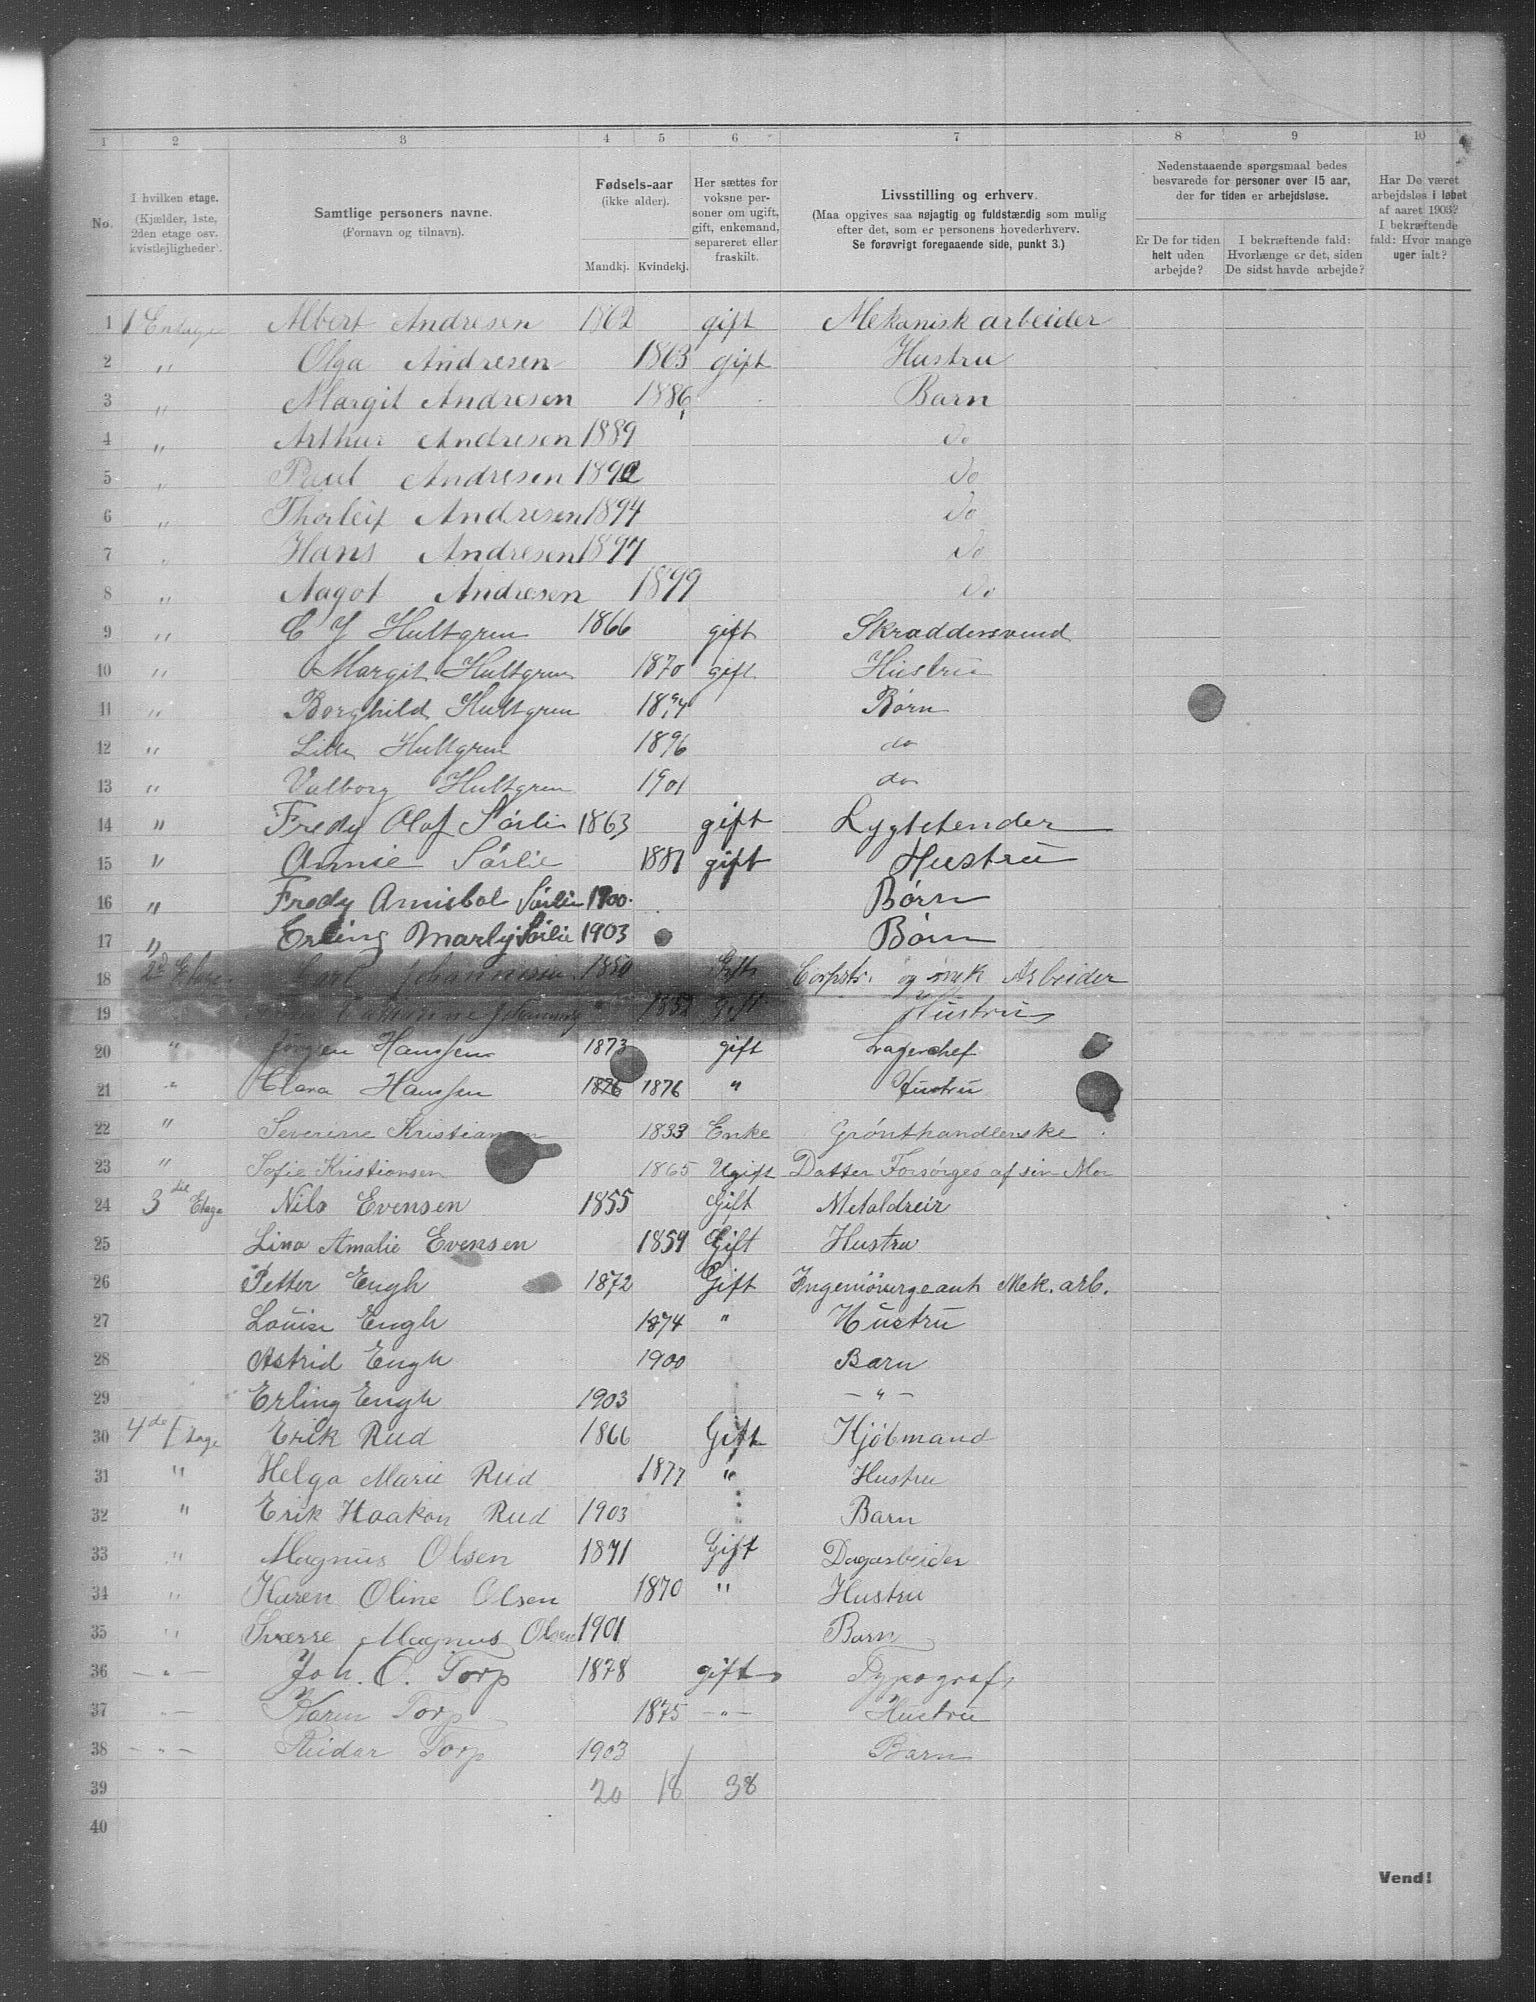 1 2 3 4 5 6 7 8 9 10
No.
I hvilken etage.
(Kjælder, 1ste,
2den etage osv.
kvistlejligheder).
Samtlige personers navne.
(Fornavn og tilnavn).
Fødsels-aar
(ikke alder).
Mandkj. Kvindekj.
Her sættes for
voksne per-
soner om ugift,
gift, enkemand,
separeret eller
fraskilt.
Livsstilling og erhverv.
(Maa opgives saa nøjagtig og fuldstærdig som mulig
efter det, som er personens hovederhverv.
Se forøvrigt foregaaende side, punkt 3.)
Nedenstaaende spørgsmaal bedes
besvarede for personer over 15 aar,
der for tiden er arbejdsløse.
Er De for tiden
helt uden
arbejde?
I bekræftende fald:
Hvorlænge er det, siden
De sidst havde arbejde?
Har De været
arbejdsløs i løbet
af aaret 1903?
I bekræftende
fald: Hvor mange
uger ialt?
1 1 Entage Albert Andresen 1862 gift Mekanisk arbeider
2 " Olga Andresen 1863 gift Hustru
3 " Margit Andresen 1886 Barn
4 " Arthur Andresen 1889 Do
5 " Paul Andresen 1892 Do
6 " Thorleif Andresen 1894 Do
7 " Hans Andresen 1897 Do
8 " Aagot Andresen 1899 Do
9 " C J Hultgren 1866 gift Skræddersvend
10 " Margit Hultgren 1870 gift Hustru
11 " Borghild Hultgren 1894 Børn
12 " Hultgren 1896 do
13 " Valborg Hultgren 1901 do
14 " Fredy Olaf Sørlie 1863 gift Lygtetender
15 " Annie Sørlie 1881 gift Hustru
16 " Fredy Annibal Sørlie 1900 Børn
17 " Erling Marly Sørlie 1903 Børn
18 2d Etage Carl Johannesen 1850 Gift og mek Arbeider
19 Cathrine 1852 Gift Hustru
20 " Jørgen Hanssen 1873 gift Lagerchef
21 " Clara Hanssen 1876 1876 " Hustru
22 " Severine Kristiansen 1833 Enke Grønthandlerske
23 " Sofie Kristiansen 1865 Ugift Datter Forsørges af sin Mor
24 3die Etage Nils Evensen 1855 Gift Metaldreir
25 Lina Amalie Evensen 1859 Gift Hustru
26 Petter Engh 1872 Gift Mek. arb.
27 Louise Engh 1874 " Hustru
28 Astrid Engh 1900 Barn
29 Erling Engh 1903 — " —
30 4de Etage Erik Rud 1866 Gift Kjøbmand
31 " Helga Marie Rud 1877 " Hustru
32 " Erik Haakon Rud 1903 Barn
33 " Magnus Olsen 1871 Gift Dagarbeider
34 " Karen Oline Olsen 1870 " Hustru
35 " Sverre Magnus Olsen 1901 Barn
36 — " — Joh. O. Torp 1878 gift Typograf
37 — " — Karen Torp 1875 — " — Hustru
38 — " — Reidar Torp 1903 Barn
39 20 18 38
40
Vend!